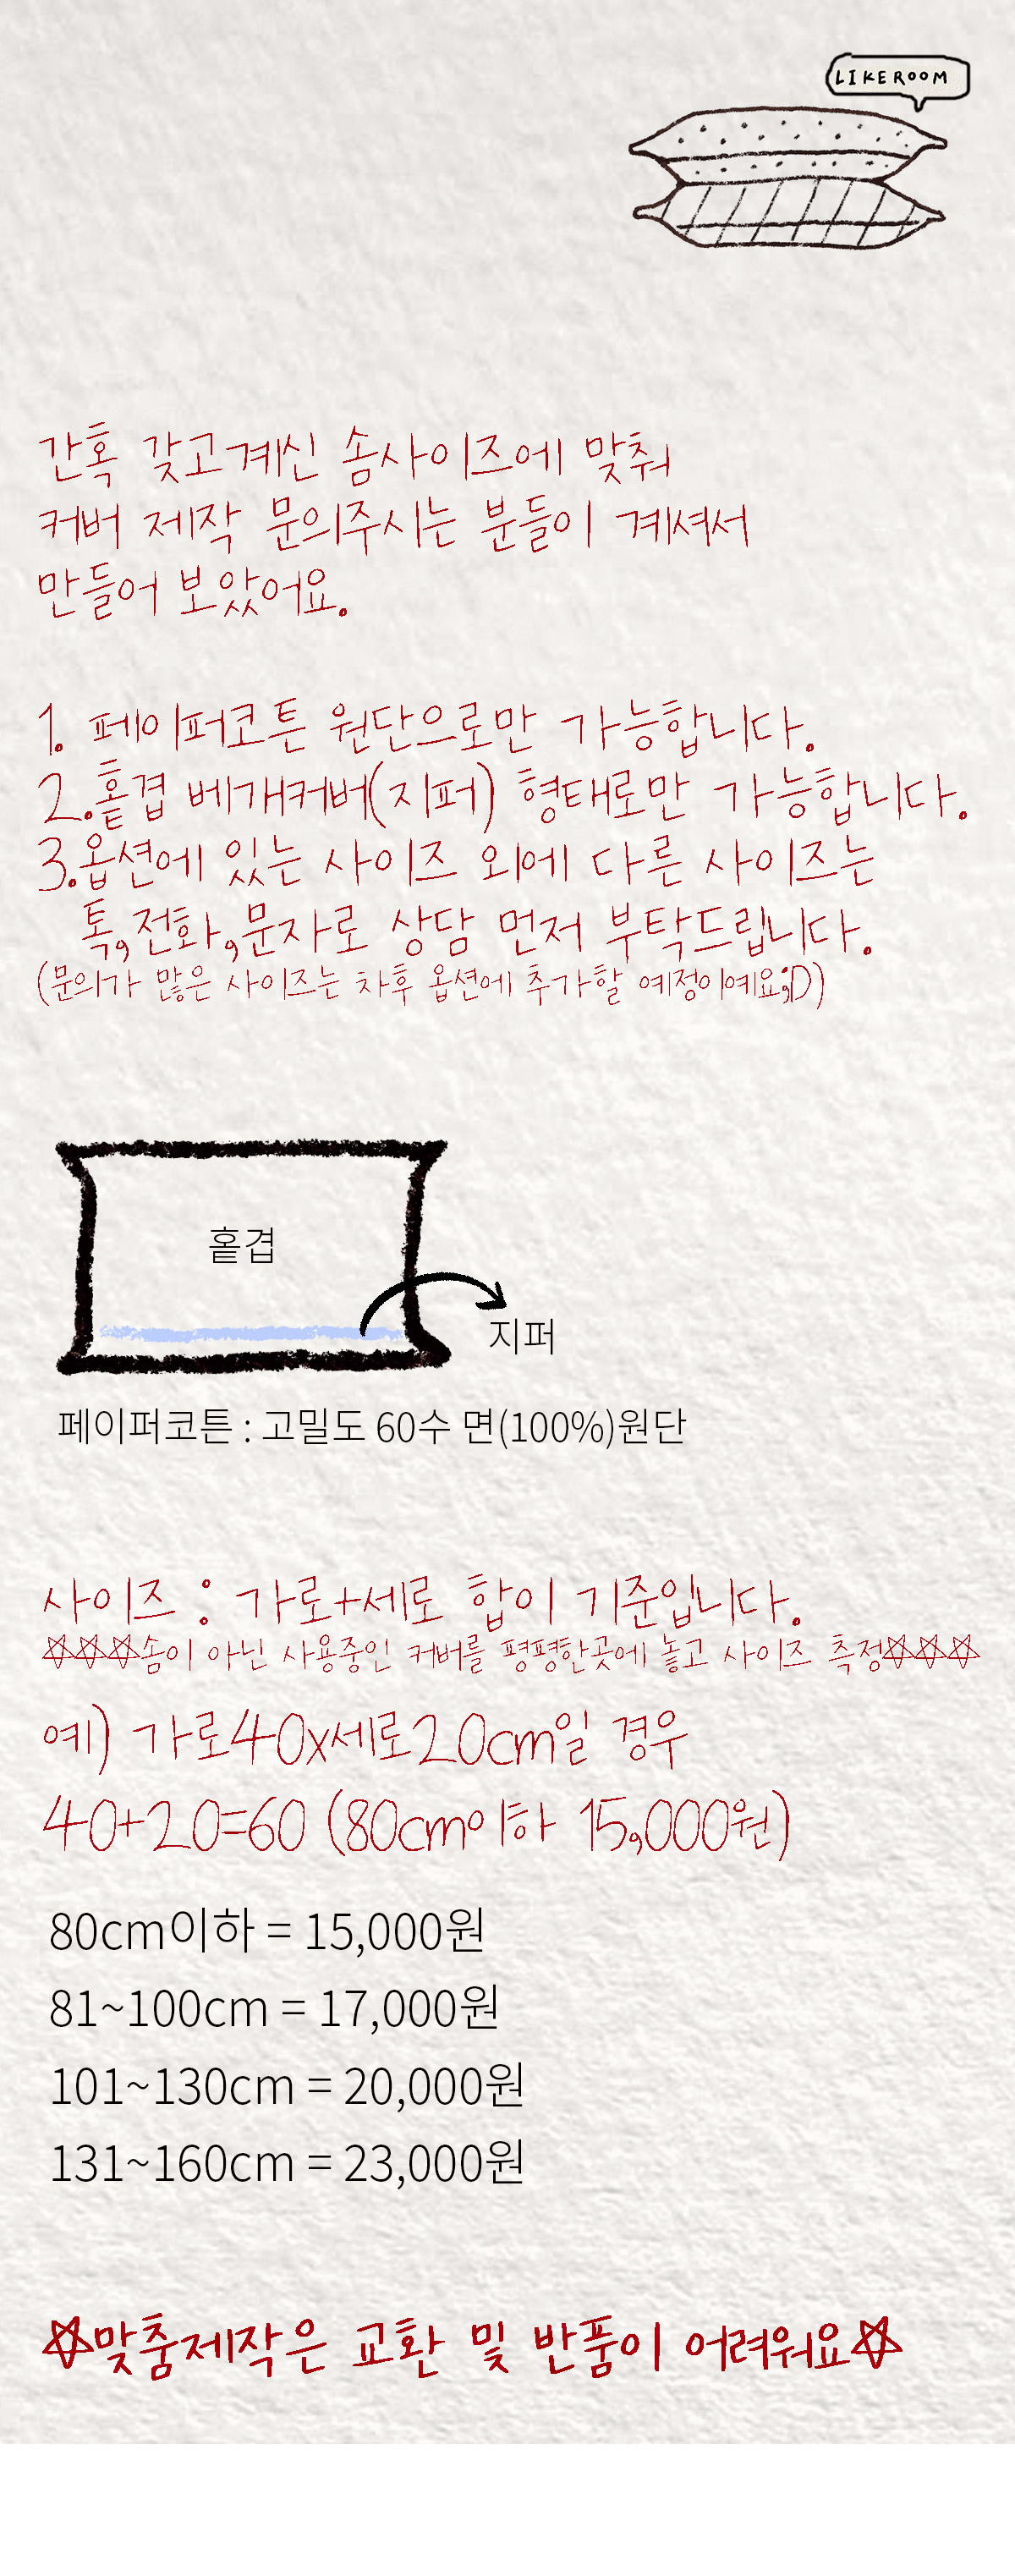 LIKEROOM
간혹 갖고계신 솜사이즈에 맞춰
커버 제작 문의주시는 분들이 계셔서
만들어 보았어요.
1. 페이퍼코튼 원단으로만 가능합니다.
2.홑겹 베개커버(지퍼) 형태로만 가능합니다.
3.옵션에 있는 사이즈 외에 다른 사이즈는
톡,전화,문자로 상담 먼저 부탁드립니다.
(문의가 많은 사이즈는 차후 옵션에 추가할 예정이예요;D)
홑겹
지퍼
페이퍼코튼 : 고밀도 60수 면(100%)원단
사이즈 : 가로+세로 합이 기준입니다.
☆☆☆솜이 아닌 사용중인 커버를 평평한곳에 놓고 사이즈 측정☆☆☆
예) 가로40x세로20cm일 경우
40+20=60 (80cm이하 15,000원)
80cm이하 = 15,000원
81~100cm = 17,000원
101~130cm = 20,000원
131~160cm = 23,000원
☆맞춤제작은 교환 및 반품이 어려워요☆